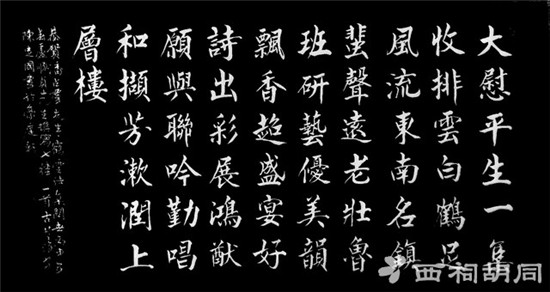 大慰平生一集
收排雲白鶴足
風流東南名鎮
蜚聲遠老壯魯
班研藝優美韻
飄香超盛宴好
詩出彩展鴻猷
願與聯吟勤唱
和擷芳漱潤上
層樓
恭賀
西祠胡同